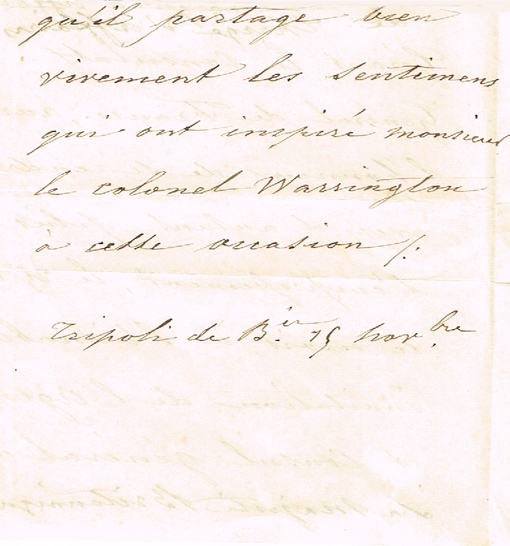 qu'il partage bien
vivement les sentimens
qui ont inspiré monsieur
le colonel Warrington
à cette occasion /.
Tripoli de B.ie 15 nov.bre